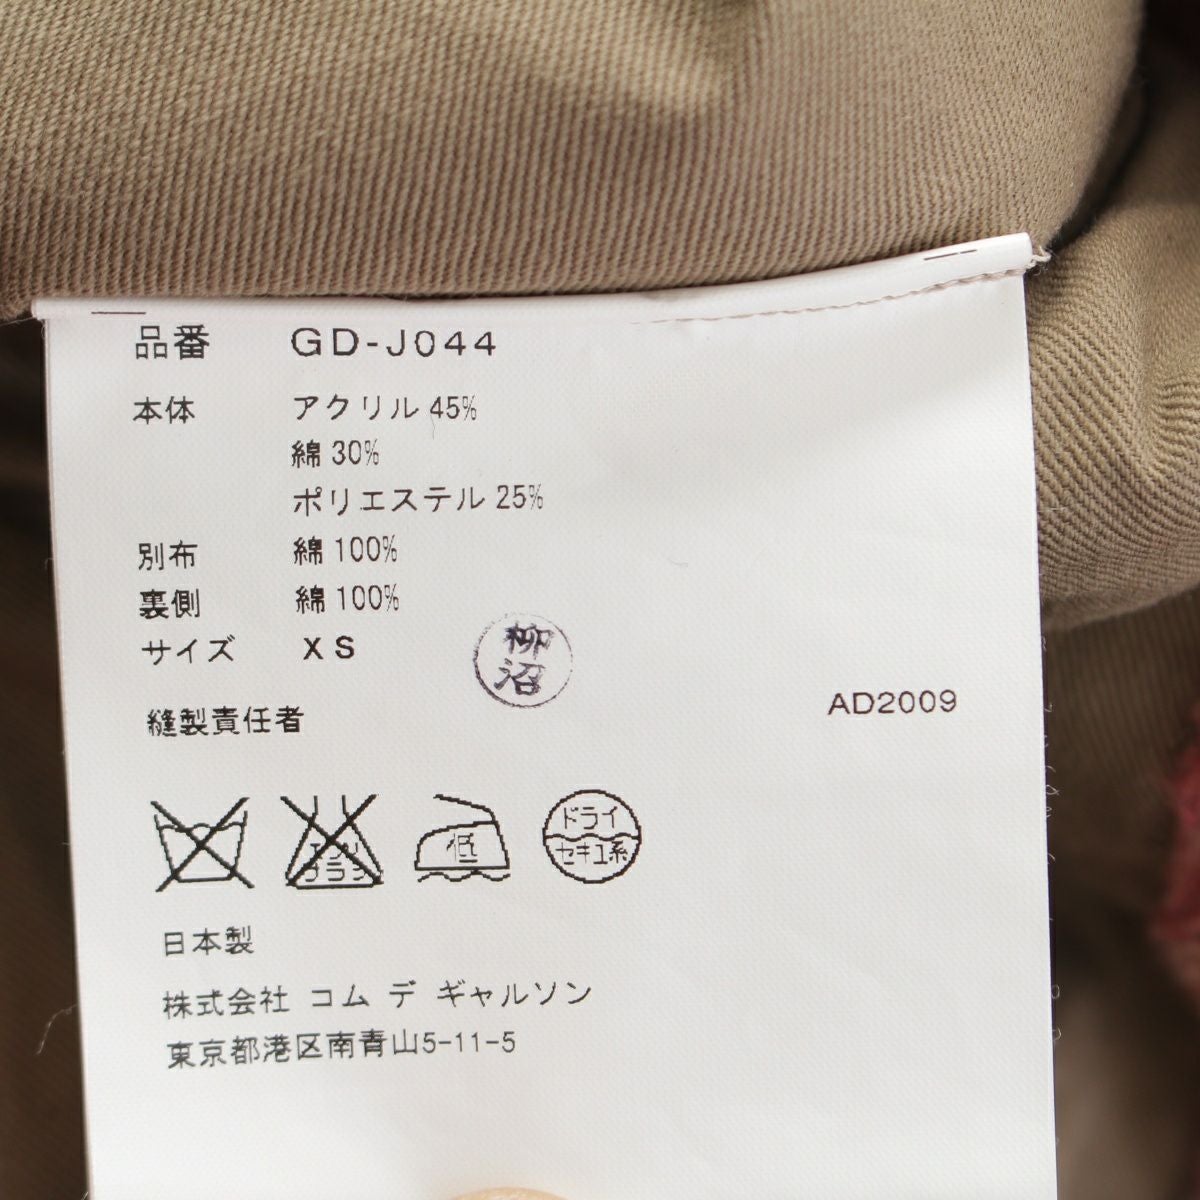 品番 GD-J044
本体 アクリル 45%
綿 30%
ポリエステル 25%
別布 綿 100%
裏側 綿 100%
サイズ XS
柳沼
縫製責任者
AD2009
エンソ
サラシ
低
ドライ
セキユ系
日本製
株式会社 コム デ ギャルソン
東京都港区南青山5-11-5